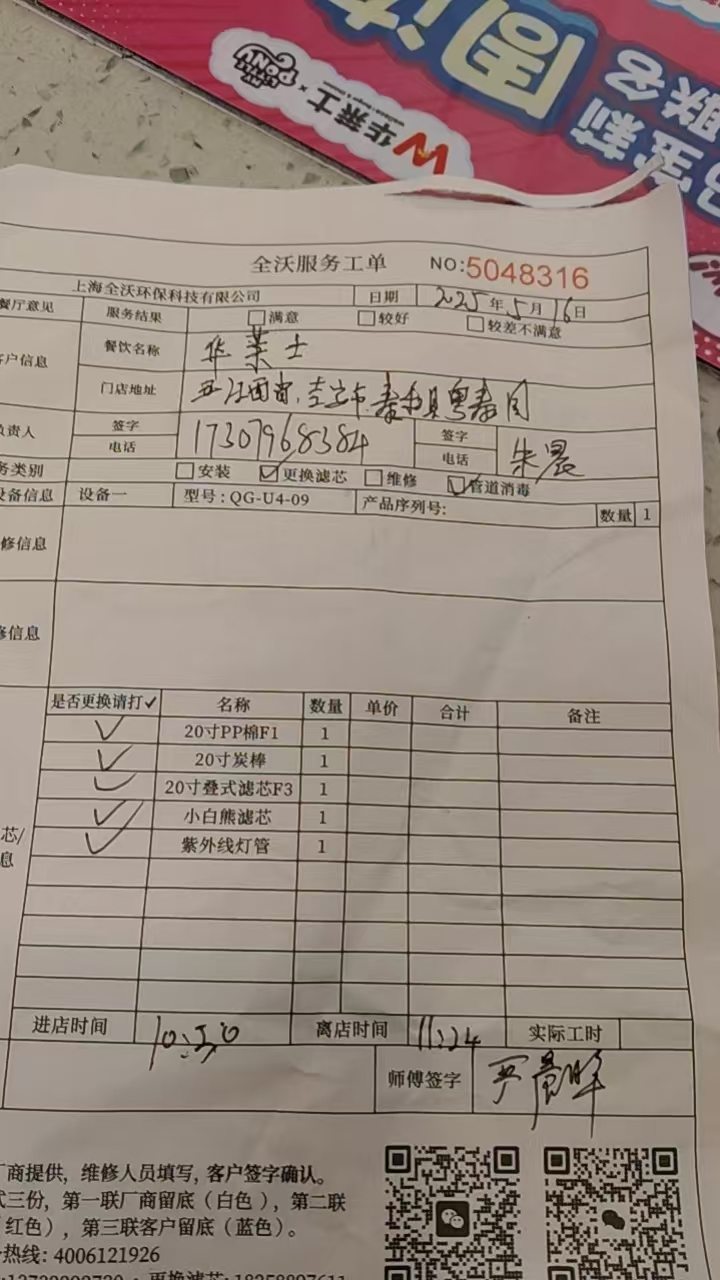 华莱士
×
PONU
宝莉
联名
全沃服务工单 NO:5048316
上海全沃环保科技有限公司 日期 2025年5月16日
餐厅意见 服务结果 满意 较好 较差不满意
客户信息 餐饮名称 华莱士
门店地址
负责人 签字 电话 17307968384 签字 电话 朱晨
务类别 安装 更换滤芯 维修 管道消毒
设备信息 设备一 型号:QG-U4-09 产品序列号: 数量 1
修信息
修信息
是否更换请打✓ 名称 数量 单价 合计 备注
✓ 20寸PP棉F1 1
✓ 20寸炭棒 1
✓ 20寸叠式滤芯F3 1
✓ 小白熊滤芯 1
✓ 紫外线灯管 1
芯/
息
进店时间 10:50 离店时间 11:24 实际工时
师傅签字
厂商提供,维修人员填写,客户签字确认。
式三份,第一联厂商留底(白色),第二联
红色),第三联客户留底(蓝色)。
热线: 4006121926